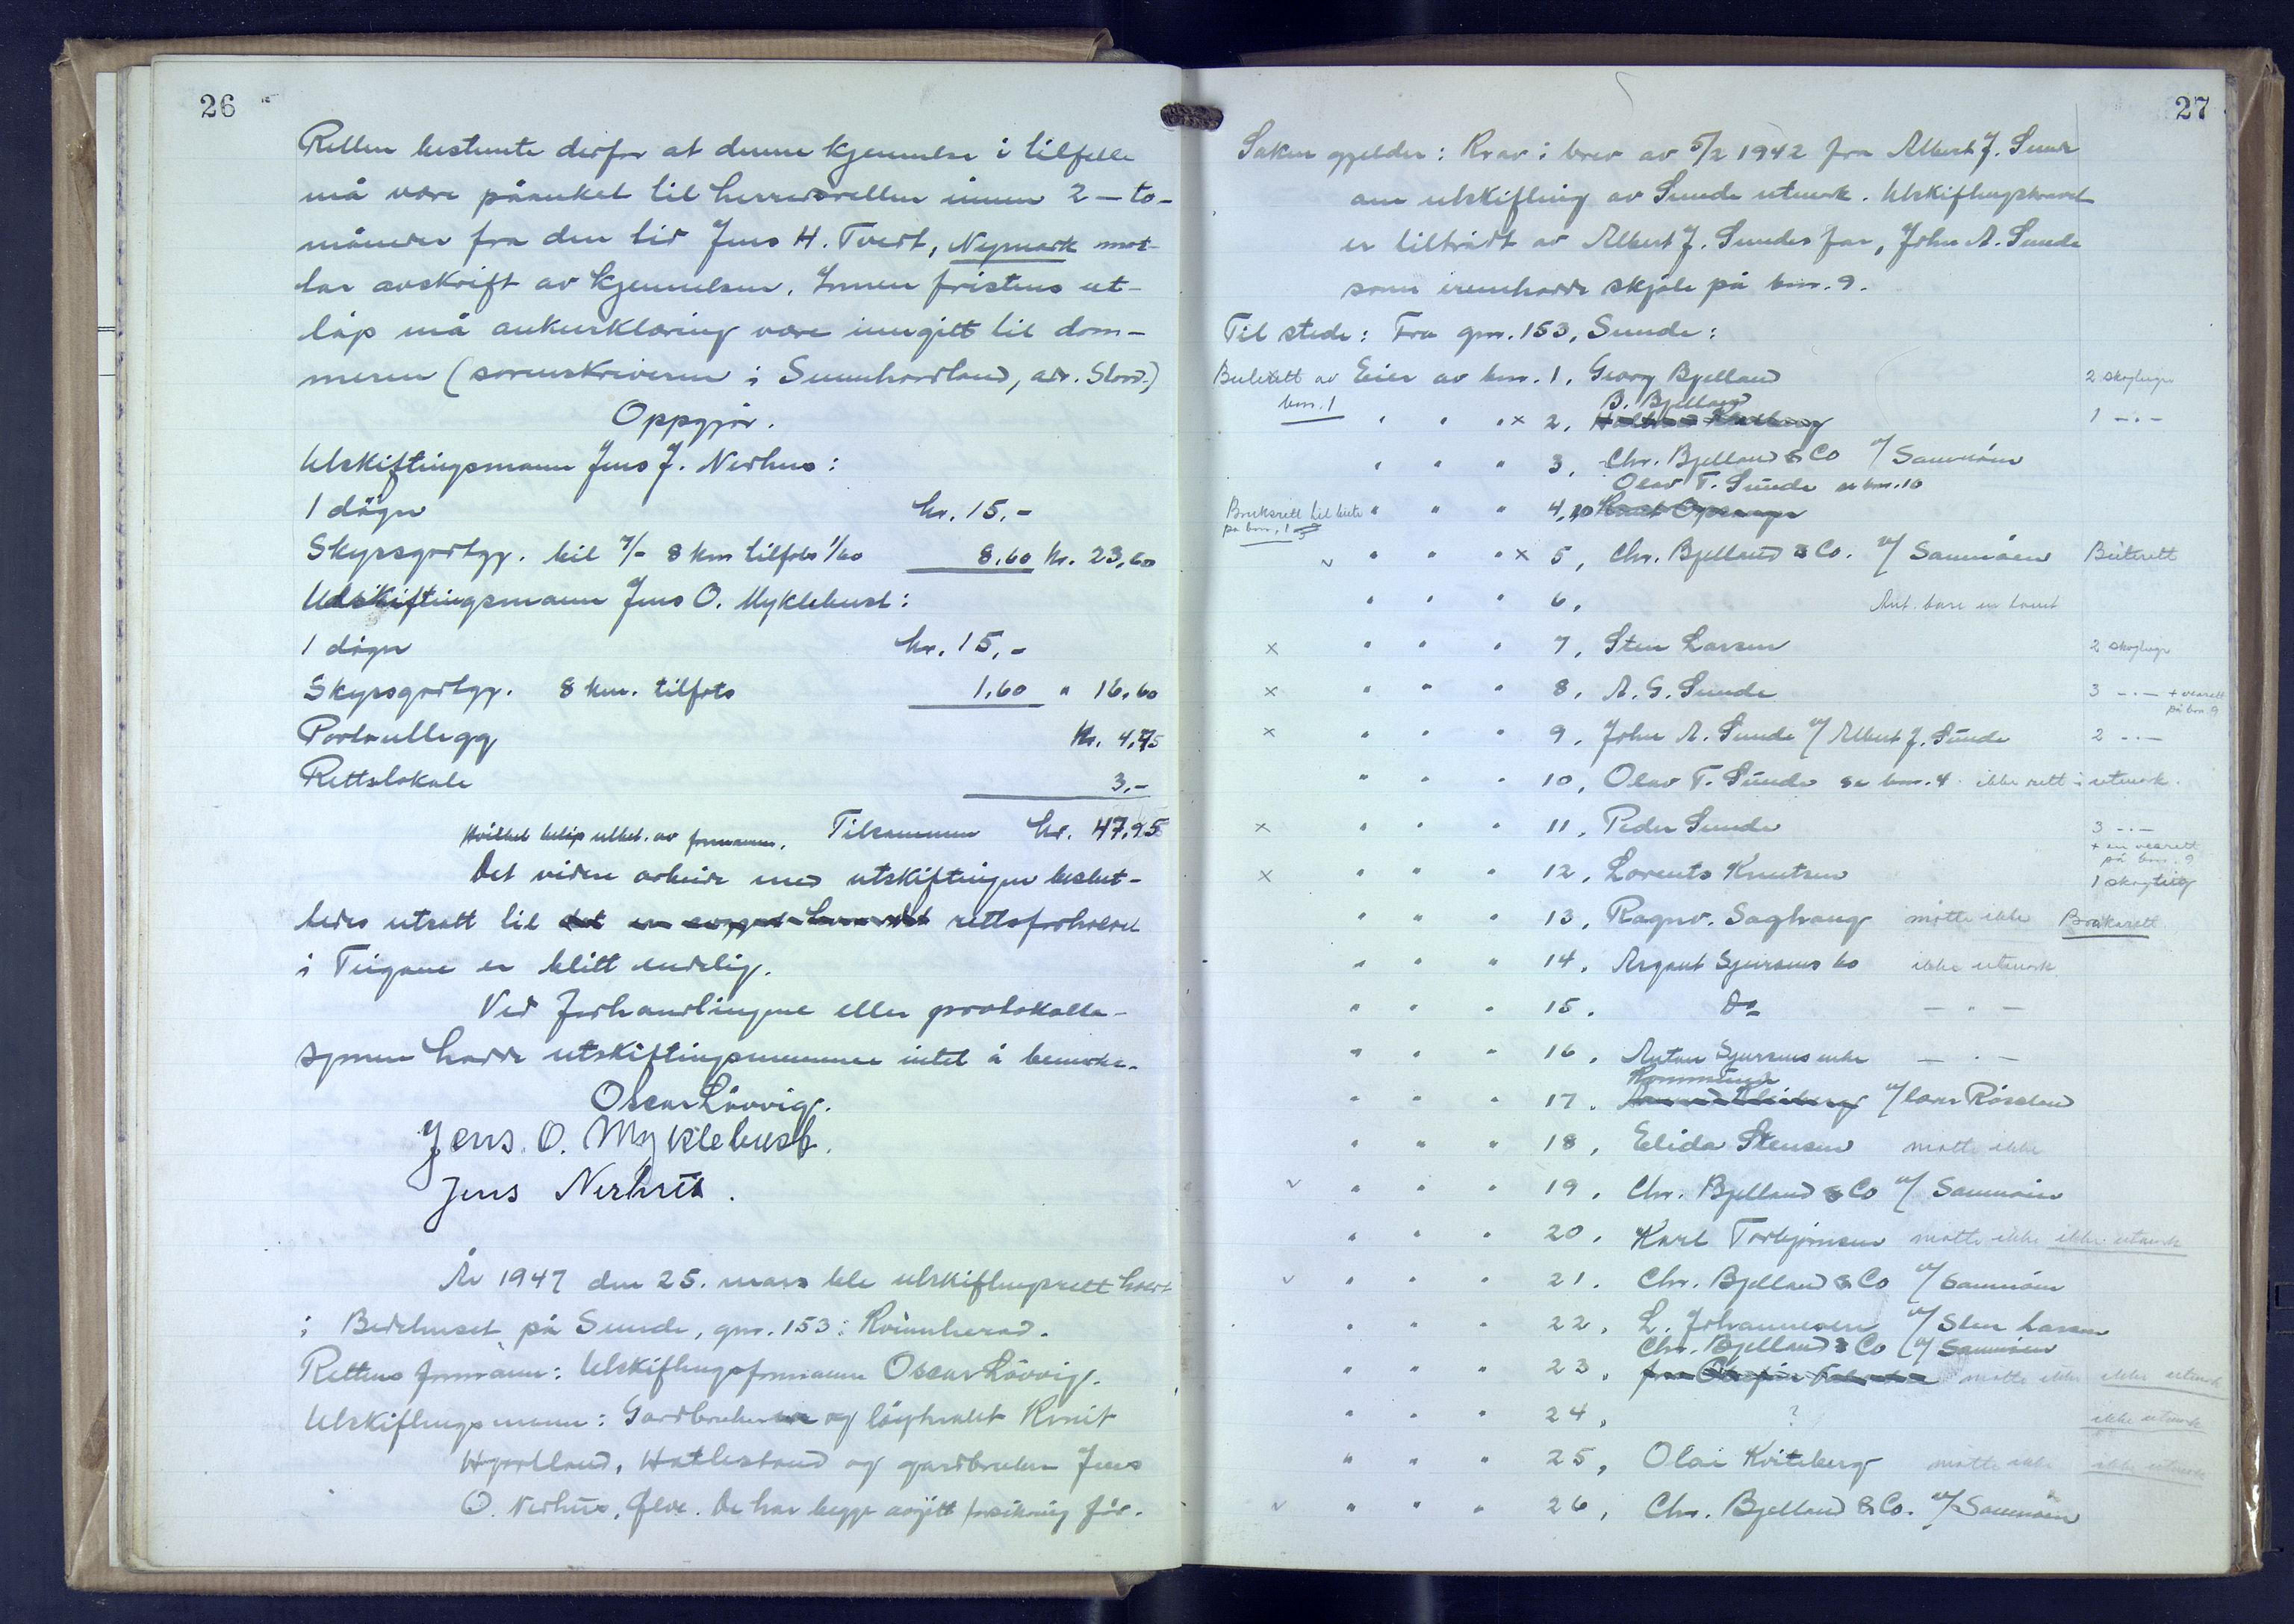 26
Retten bestemte derfor at denne kjennelse i tilfelle
må være påanket til herredsretten innen 2 – to –
måneder fra den tid Jens H. Tvedt, Nymark mot-
tar avskrift av kjennelsen. Innen fristens ut-
løp må ankeerklæring være inngitt til dom-
meren (sorenskriveren i Sunnhordland, adr. Stord.)
Oppgjør.
Utskiftingsmann Jens J. Nerhus:
1 døgn kr. 15,-
Skyssgodtgj. bil 7/- 8 km tilfots 1/60 8,60 kr. 23,60
Utskiftingsmann Jens O. Myklebust:
1 døgn kr. 15,-
Skyssgodtgj. 8 km. tilfots 1,60 " 16,60
Portoutlegg kr. 4,75
Rettslokale 3,-
Hvilket beløp utbet. av formannen. Tilsammen kr. 47,95
Det videre arbeide med utskiftingen beslut-
tedes utsatt til det rettsforholdet
i Teigane er blitt endelig.
Ved forhandlingene eller protokolla-
sjonen hadde utskiftingsmennene intet å bemerke.
Oscar Løvvig.
Jens. O. Myklebust.
Jens Nerhus.
År 1947 den 25. mars ble utskiftingsrett holdt
i Bedehuset på Sunde, gnr. 153 i Kvinnherad.
Rettens formann: Utskiftingsformann Oscar Løvvig.
Utskiftingsmenn: Gardbruker og Knut
Hjortland, Hatlestrand og gardbruker Jens
O. Nerhus, Ølve. De har begge avgitt forsikring før.
27
Saken gjelder: Krav i brev av 5/2 1942 fra Albert J. Sunde
om utskifting av Sunde utmark. Utskiftingskravet
er tiltrådt av Albert J. Sundes far, John A. Sunde
som innehadde skjøte på bnr. 9.
Til stede: Fra gnr. 153, Sunde:
Beiterett av Eier av bnr. 1, Georg Bjelland 2 skogteiger
bnr. 1 B. Bjelland
" " " x 2, 1 -"-
" " " 3, Chr. Bjelland & Co v/ Samnøen
Olav T. Sunde se bnr. 10
Bruksrett til beite " " " 4, 10
på bnr. 1
v " " " x 5, Chr. Bjelland & Co. v/ Samnøen Beiterett
" " " 6, Ant. bare en tomt
x " " " 7, Sten Larsen 2 skogteiger
x " " " 8, A. G. Sunde 3 -"- + vearett
på bnr. 9
x " " " 9, John A. Sunde v/ Albert J. Sunde 2 -"-
" " " 10, Olav T. Sunde se bnr. 4 ikke rett i utmark.
x " " " 11, Peder Sunde 3 -"-
+ en vearett
på bnr. 9
x " " " 12, Lorents Knutsen 1 skogteig
" " " 13, Ragnv. Saghaug møtte ikke Bruksrett
" " " 14, Sjursens bo ikke utmark
" " " 15. Do — " —
" " " 16, Anton Sjursens enke — " —
Kommune
" " " 17. v/ Lars Røssland
" " " 18, Elida Stensen møtte ikke
v " " " 19, Chr. Bjelland & Co v/ Samnøen
" " " 20, Karl Torbjørnsen møtte ikke ikke utmark
v " " " 21. Chr. Bjelland & Co v/ Samnøen
" " " 22, L. Johannesen v/ Sten Larsen
Chr. Bjelland & Co v/ Samnøen
" " " 23, møtte ikke ikke utmark
" " " 24, ? ikke utmark
" " " 25, Olai Kviteberg møtte ikke ikke utmark
v " " " 26, Chr. Bjelland & Co. v/ Samnøen